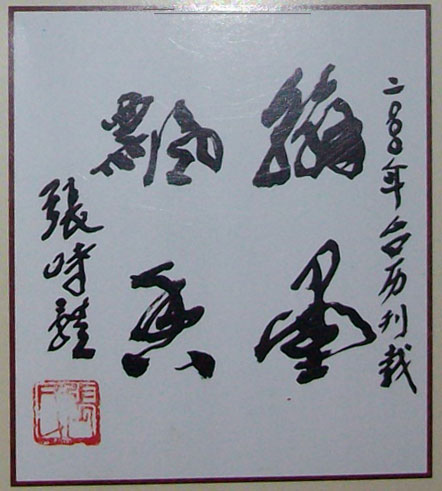 二〇〇〇年台历刊载
翰墨
飄香
張時